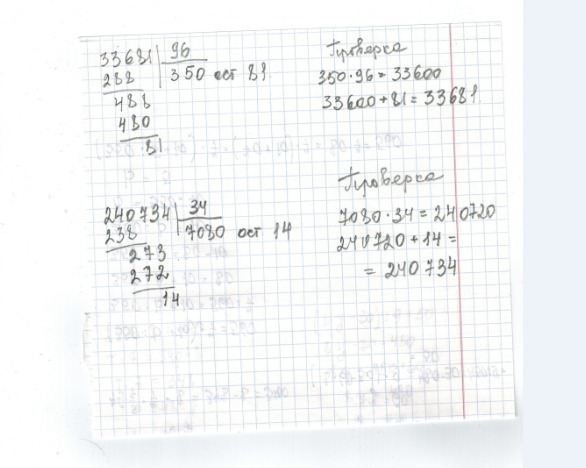 33681 | 96
288 350 ост 81
488
480
81
Проверка
350·96=33600
33600+81=33681
240734 | 34
238 7080 ост 14
273
272
14
Проверка
7080·34=240720
240720+14=
=240734